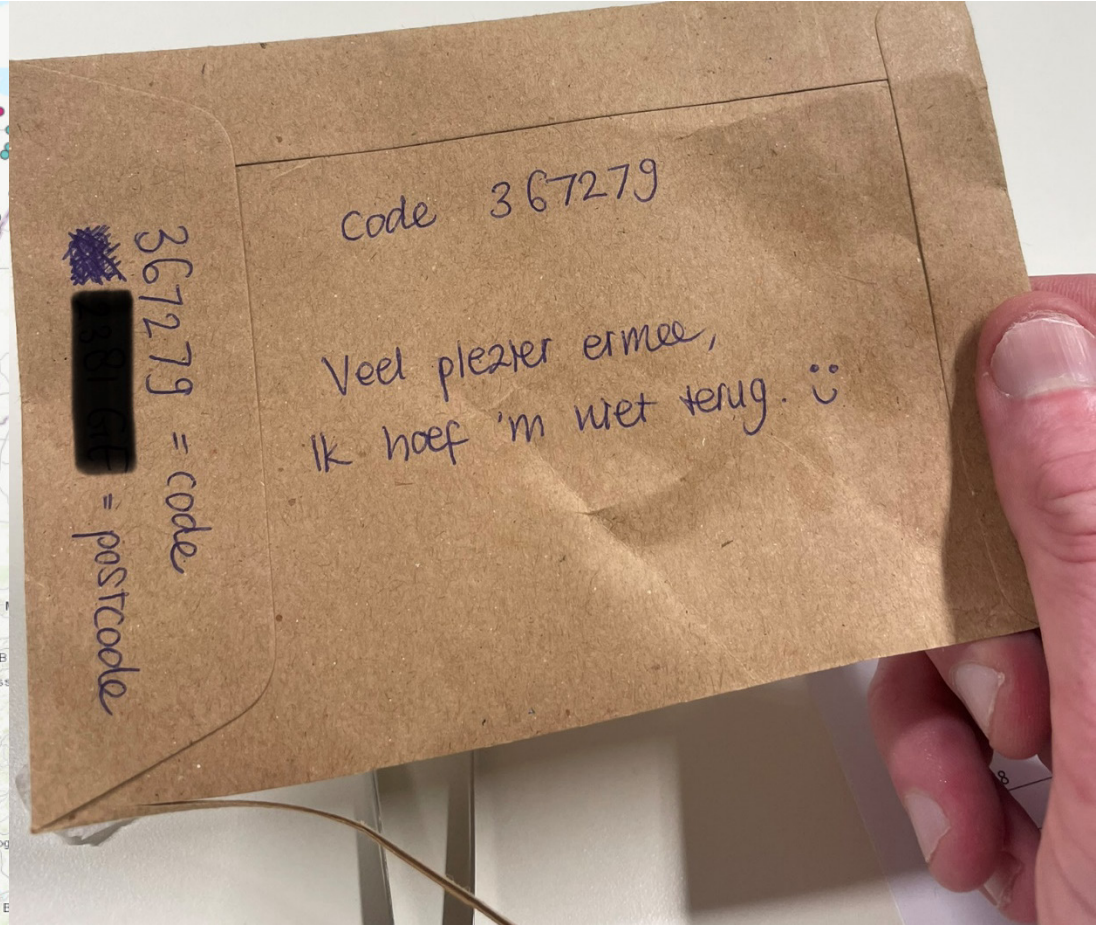 code 367279
Veel plezier ermee,
Ik hoef 'm niet terug.
367279 = code
= postcode
8